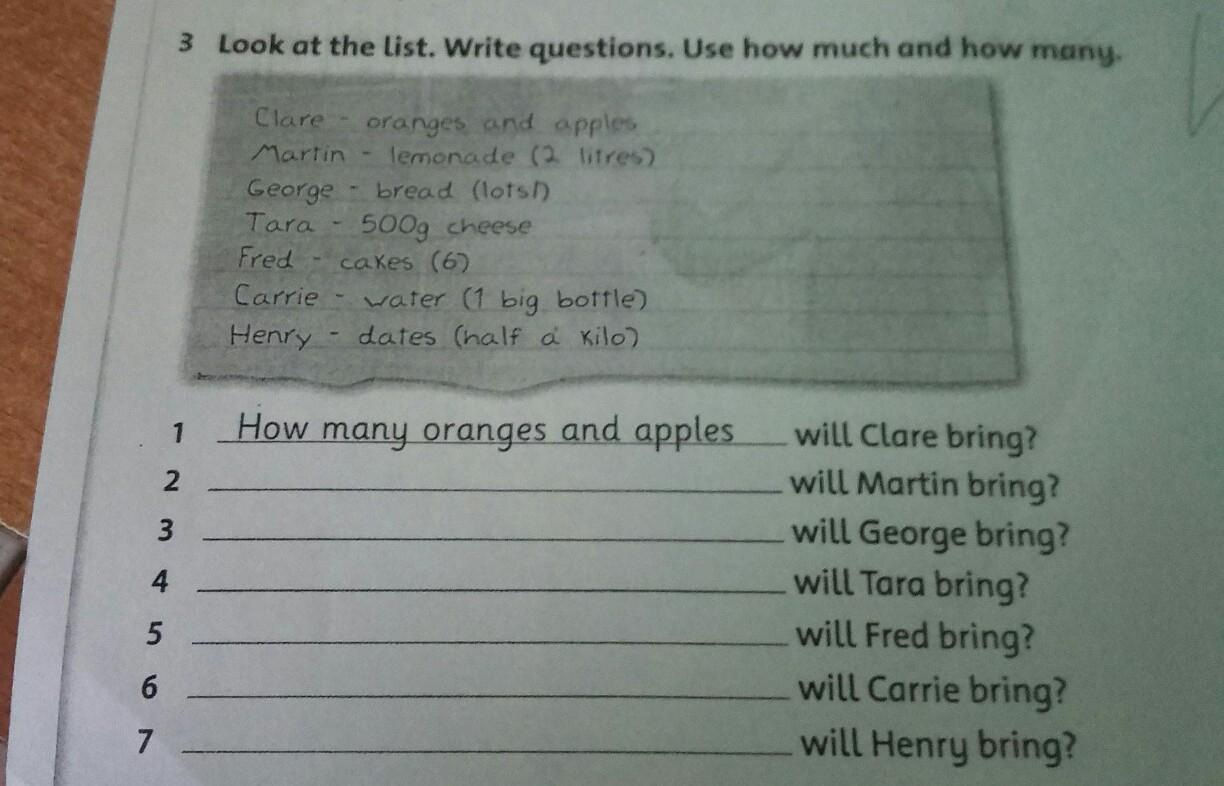 3 Look at the list. Write questions. Use how much and how many.
Clare - oranges and apples
Martin - lemonade (2 litres)
George - bread (lots!)
Tara - 500g cheese
Fred - cakes (6)
Carrie - water (1 big bottle)
Henry - dates (half a kilo)
1 How many oranges and apples will Clare bring?
2 will Martin bring?
3 will George bring?
4 will Tara bring?
5 will Fred bring?
6 will Carrie bring?
7 will Henry bring?